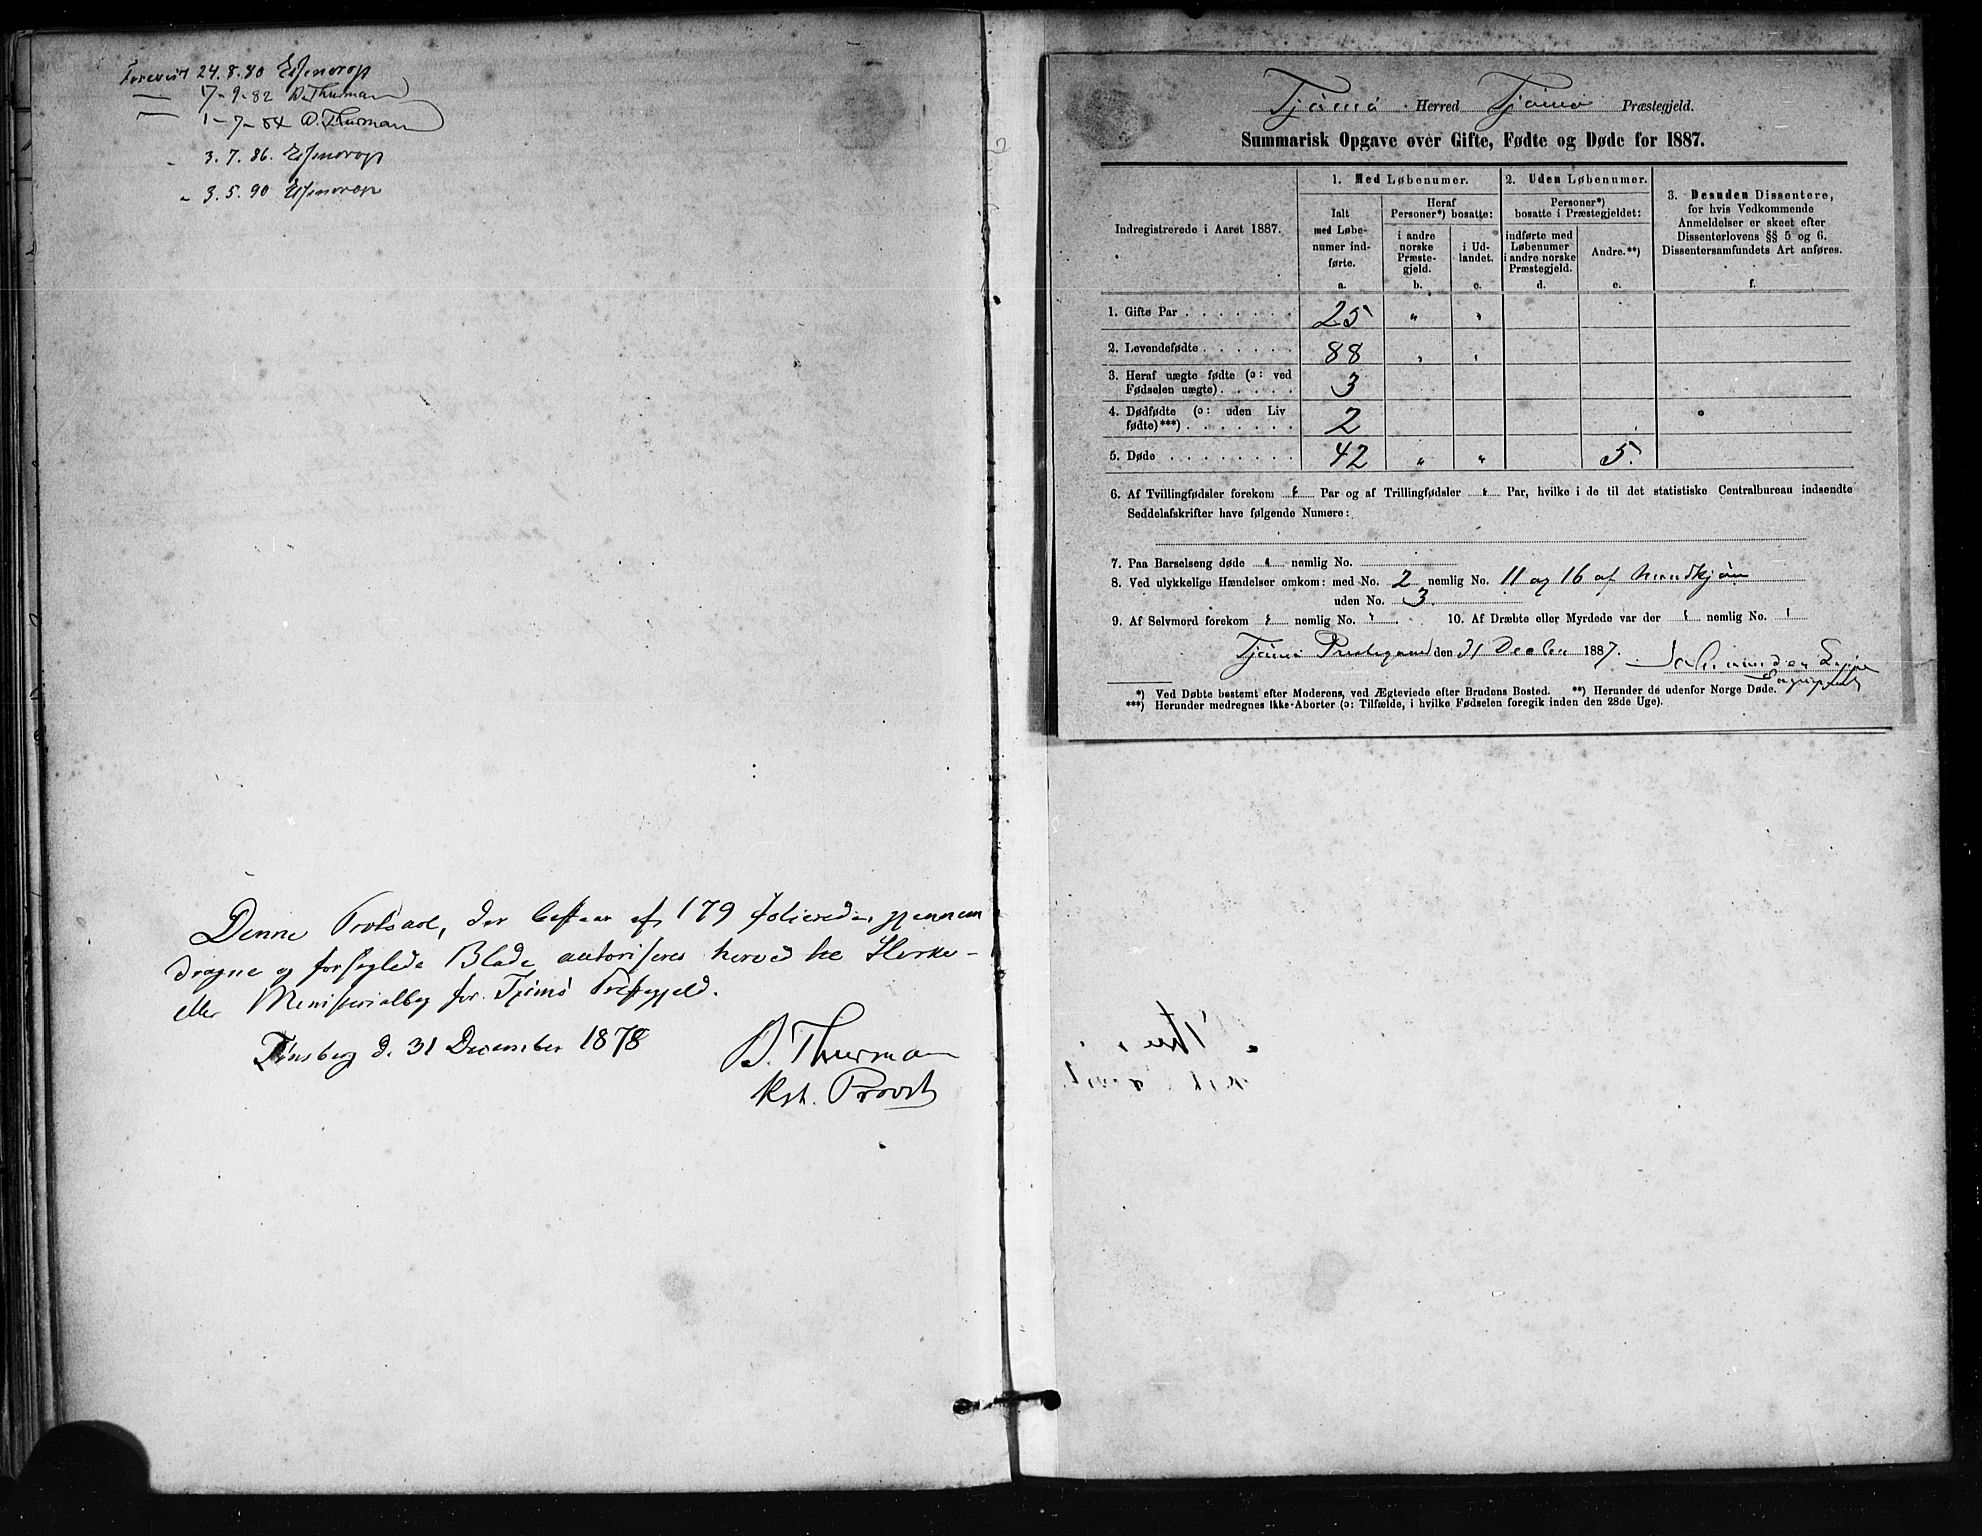 Forevist 24.8.80 Essendrop
— 17-9-82 B. Thurman
— 1-7-84 B. Thurman
" 3.7.86. Essendrop
" 3.5.90 Essendrop
Denne Protocol, der bestaar af 179 folierede, gjennem
dragne og forseglede Blade autoriseres herved til Kirke-
eller Ministerialbog for Tjömö Præstegjeld.
Tønsberg d. 31 December 1878
B. Thurman
Kst. Provst
Tjömö Herred Tjömö Præstegjeld.
Summarisk Opgave over Gifte, Fødte og Døde for 1887.
Indregistrerede i Aaret 1887.
1. Med Løbenumer.
Ialt
med Løbe-
numer ind-
førte.
a.
Heraf
Personer*) bosatte:
i andre
norske
Præste-
gjeld.
b.
i Ud-
landet.
c.
2. Uden Løbenumer.
Personer*)
bosatte i Præstegjeldet:
indførte med
Løbenumer
i andre norske
Præstegjeld.
d.
Andre.**)
e.
3. Desuden Dissentere,
for hvis Vedkommende
Anmeldelser er skeet efter
Dissenterlovens §§ 5 og 6.
Dissentersamfundets Art anføres.
f.
1. Gifte Par . . . . . . . 25 " "
2. Levendefødte . . . . . . 88 " "
3. Heraf uægte fødte (ɔ: ved
Fødselen uægte) . . . . . 3
4. Dødfødte (ɔ: uden Liv
fødte)***) . . . . . . . 2
5. Døde . . . . . . . . 42 " " 5.
6. Af Tvillingfødsler forekom " Par og af Trillingfødsler " Par, hvilke i de til det statistiske Centralbureau indsendte
Seddelafskrifter have følgende Numere:
7. Paa Barselseng døde " nemlig No.
8. Ved ulykkelige Hændelser omkom: med No. 2 nemlig No. 11 og 16 af mandkjön
uden No. 3.
9. Af Selvmord forekom " nemlig No. " 10. Af Dræbte eller Myrdede var der " nemlig No. "
Tjömö Prestegaard den 31 Decbr 1887.
*) Ved Døbte bestemt efter Moderens, ved Ægteviede efter Brudens Bosted. **) Herunder de udenfor Norge Døde.
***) Herunder medregnes ikke Aborter (ɔ: Tilfælde, i hvilke Fødselen foregik inden den 28de Uge).